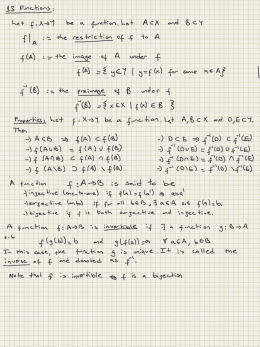 §3 Functions:
Let f: X→Y be a function. Let A⊂X and B⊂Y
f|_A := the restriction of f to A
f(A) := the image of A under f
f(A) = { y∈Y | y=f(x) for some x∈A }
f⁻¹(B) := the preimage of B under f
f⁻¹(B) = { x∈X | f(x)∈B }
Properties: Let f: X→Y be a function. Let A,B⊂X and D,E⊂Y.
Then
→) A⊂B ⇒ f(A)⊂f(B) →) D⊂E ⇒ f⁻¹(D)⊂f⁻¹(E)
→) f(A∪B) = f(A)∪f(B) →) f⁻¹(D∪E) = f⁻¹(D)∪f⁻¹(E)
→) f(A∩B) ⊂ f(A)∩f(B) →) f⁻¹(D∩E) = f⁻¹(D)∩f⁻¹(E)
→) f(A\B) ⊃ f(A)\f(B) →) f⁻¹(D\E) = f⁻¹(D)\f⁻¹(E)
A function f: A→B is said to be
if f(a)=f(a') ⇒ a=a'
if for all b∈B, ∃ a∈A s.t. f(a)=b
→) bijective if f is both surjective and injective.
A function f: A→B is invertible if ∃ a function g: B→A
s.t.
f(g(b))=b and g(f(a))=a ∀ a∈A, b∈B
In this case, the function g is unique. It is called the
inverse of f and denoted as f⁻¹.
Note that f is invertible ⇔ f is a bijection